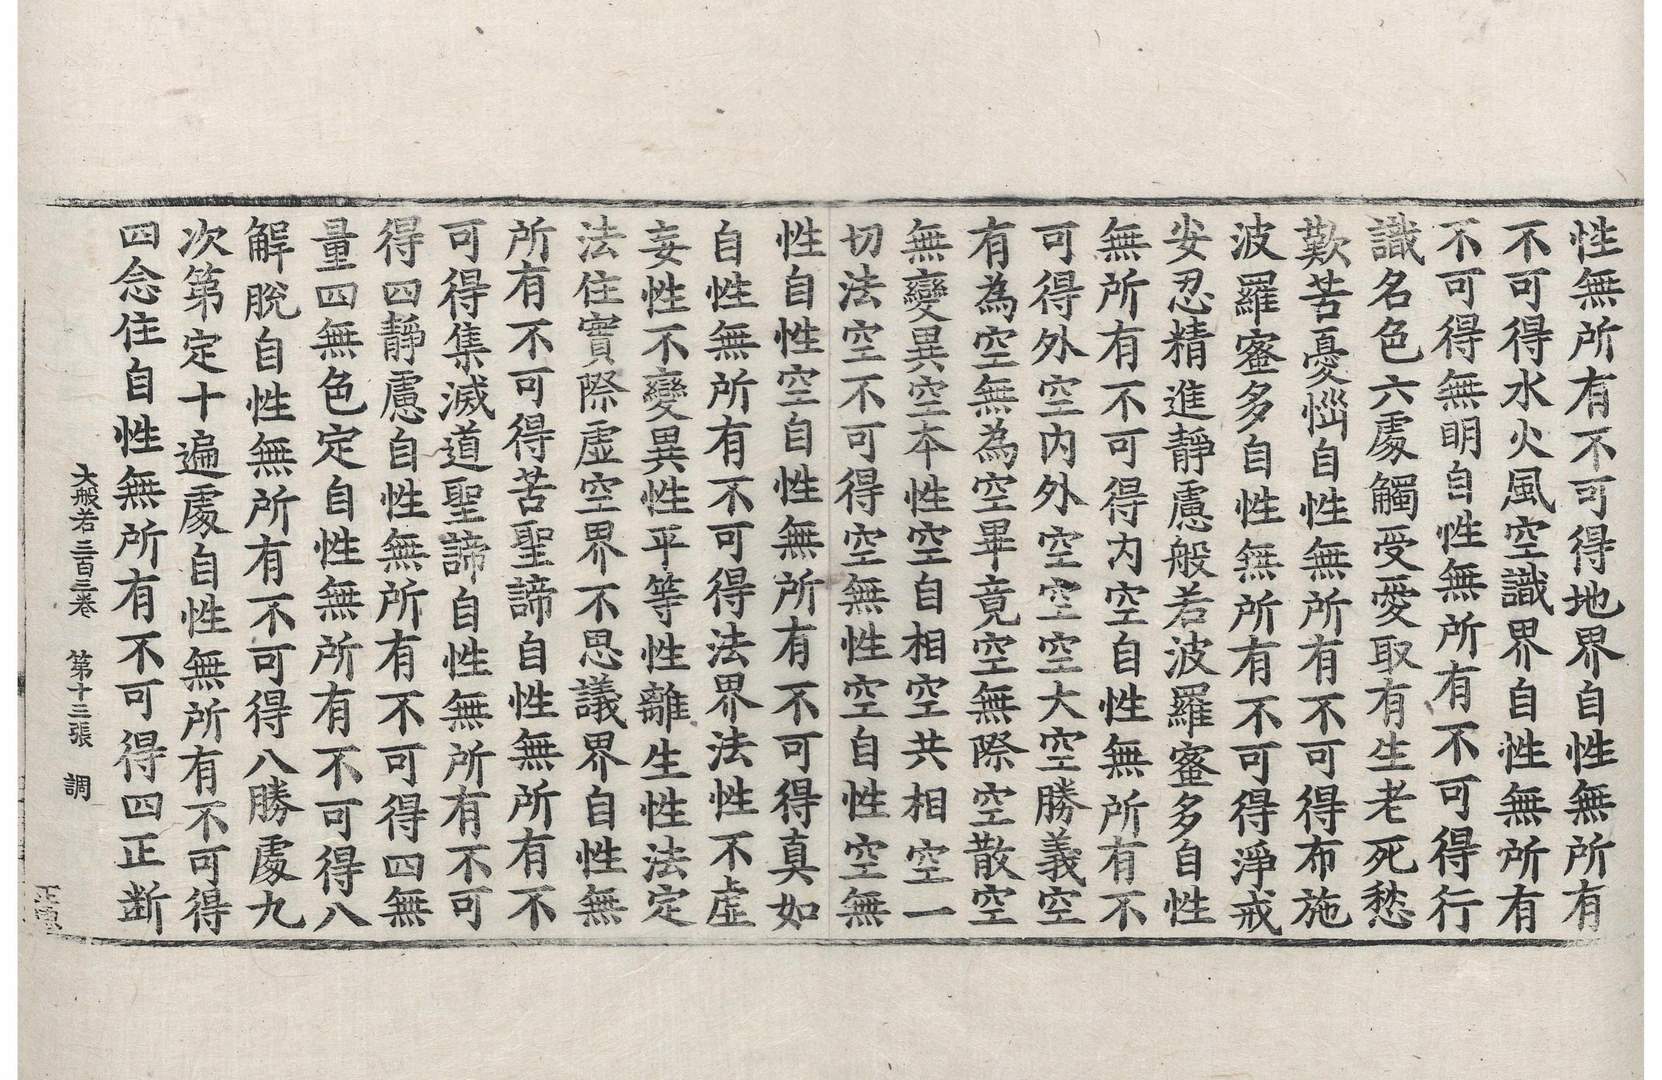 性無所有不可得地界自性無所有
不可得水火風空識界自性無所有
不可得無明自性無所有不可得行
識名色六處觸受愛取有生老死愁
歎苦憂惱自性無所有不可得布施
波羅蜜多自性無所有不可得淨戒
安忍精進靜慮般若波羅蜜多自性
無所有不可得內空自性無所有不
可得外空內外空空空大空勝義空
有為空無為空畢竟空無際空散空
無變異空本性空自相空共相空一
切法空不可得空無性空自性空無
性自性空自性無所有不可得真如
自性無所有不可得法界法性不虛
妄性不變異性平等性離生性法定
法住實際虛空界不思議界自性無
所有不可得苦聖諦自性無所有不
可得集滅道聖諦自性無所有不可
得四靜慮自性無所有不可得四無
量四無色定自性無所有不可得八
解脫自性無所有不可得八勝處九
次第定十遍處自性無所有不可得
四念住自性無所有不可得四正斷
大般若三百三卷 第十三張 調